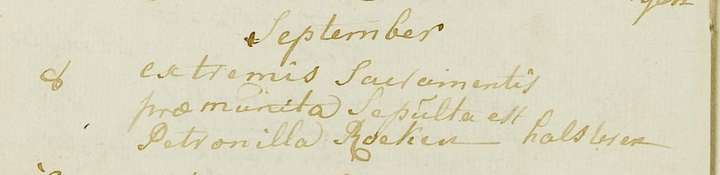 September
8 extremis Sacramentis
præmunita Sepulta est
Petronilla Roeken